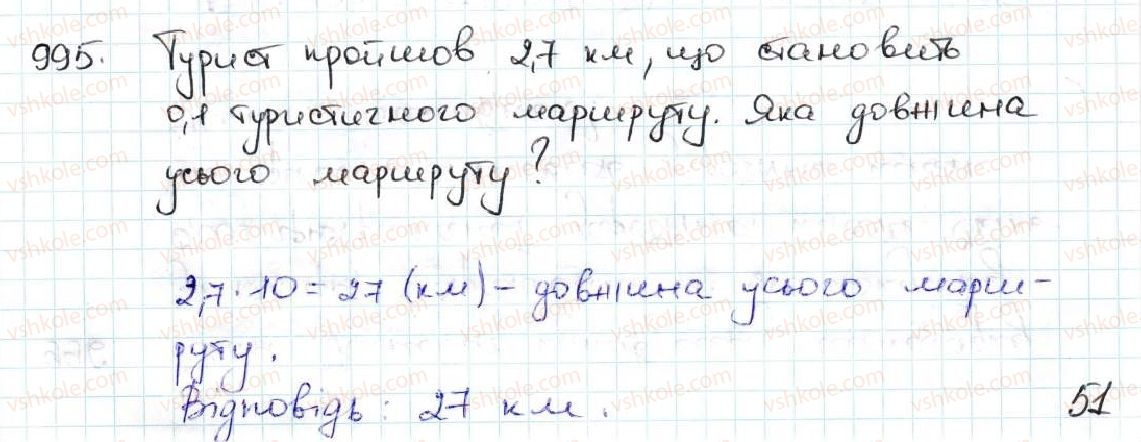 995. Турист пройшов 2,7 км, що становить
0,1 туристичного маршруту. Яка довжина
усього маршруту?
2,7·10=27 (км) – довжина усього марш-
руту.
Відповідь: 27 км.
51